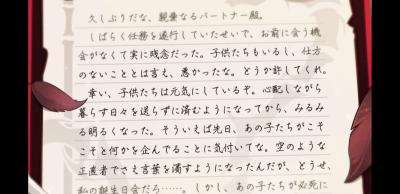 久しぶりだな、親愛なるパートナー殿。
しばらく任務を遂行していたせいで、お前に会う機
会がなくて実に残念だった。子供たちもいるし、仕方
のないこととは言え、悪かったな。どうか許してくれ。
幸い、子供たちは元気にしているぞ。心配しながら
暮らす日々を送らずに済むようになってから、みるみ
る明るくなった。そういえば先日、あの子たちがこそ
こそと何かを企んでることに気付いてな。空のような
正直者でさえ言葉を濁すようになったんだが、どうせ、
私の誕生日会だろ……。しかし、あの子たちが必死に